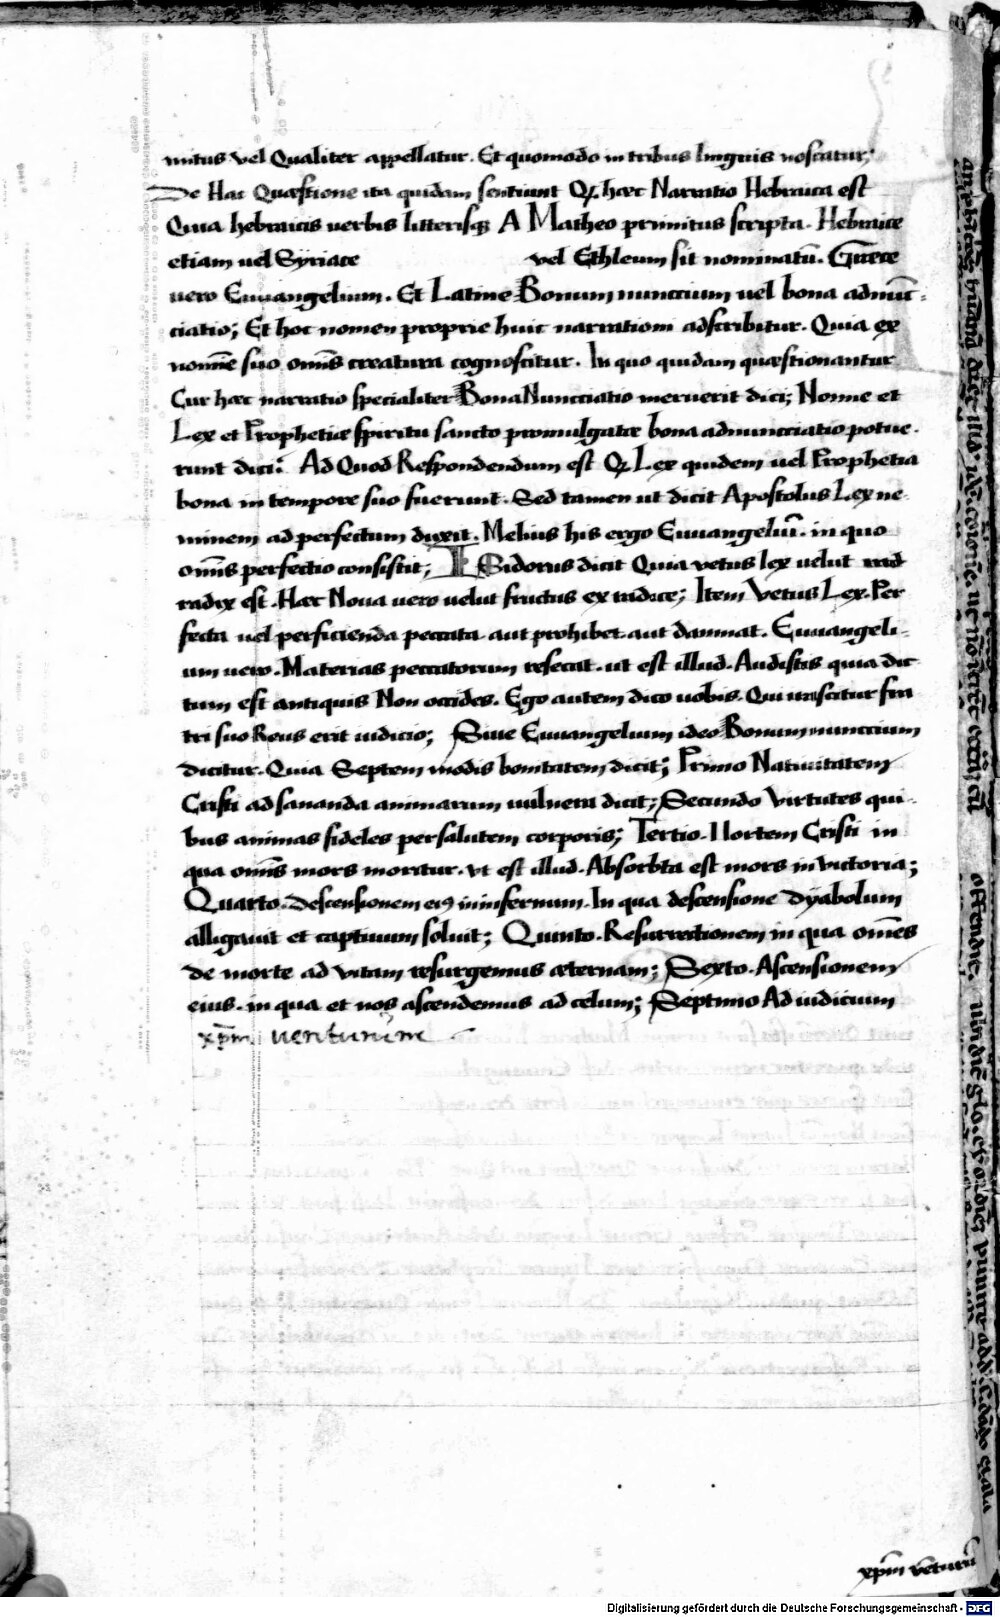 mitus vel Qualiter appellatur. Et quomodo in tribus linguis noscatur;
De Hac Quæstione ita quidam sentiunt Qꝛ hæc Narratio Hebraica est
Quia hebraicis verbis litterisqꝫ A Matheo primitus scripta. Hebraice
etiam uel Syriace vel Ethleum sit nominatū. Græce
uero Euuangelium. Et Latine Bonum nunctium uel bona adnūc-
ciatio; Et hoc nomen proprie huic narrationi adscribitur. Quia ex
nomīe suo omīs creatura cognoscitur. In quo quidam quæstionantur
Cur hæc narratio specialiter Bona Nuncciatio meruerit dici; Nonne et
Lex et Prophetiæ spiritu sancto promulgatæ bona adnuncciatio potue-
runt dici: Ad Quod Respondendum est Qꝛ Lex quidem uel Prophetia
bona in tempore suo fuerunt. Sed tamen ut dicit Apostolus Lex ne-
minem ad perfectum duxit. Melius his ergo Euuangeliū. in quo
omīs perfectio consistit; ISidorus dicit Quia vetus lex uelut rad
radix est. Hæc Noua uero uelut fructus ex radice; Item Vetus Lex. Per
fecta uel perficienda peccata aut prohibet aut damnat. Euuangeli-
um uero. Materias peccatorum resecat. ut est illud. Audistis quia dic
tum est antiquis Non occides. Ego autem dico uobis. Qui irascitur fra
tri suo Reus erit iudicio; Siue Euuangelium ideo Bonum nunccium
dicitur. Quia Septem modis bonitatem dicit; Primo Natiuitatem
Cristi ad sananda animarum uulnera dicit; Secundo Virtutes qui-
bus animas fideles per salutem corporis; Tertio. Mortem Cristi in
qua omīs mors moritur. vt est illud. Absorbta est mors in victoria;
Quarto. Descensionem eiꝰ in infernum. In qua descensione Dyabolum
alligauit et captiuum soluit; Quinto. Resurrectionem in qua omēs
de morte ad vitam resurgemus æternam; Sexto. Ascensionem
eius. in qua et nos ascendemus ad celum; Septimo Ad iudicium
xp̄m uenturum.
xp̄m ventuꝝ
Digitalisierung gefördert durch die Deutsche Forschungsgemeinschaft - DFG